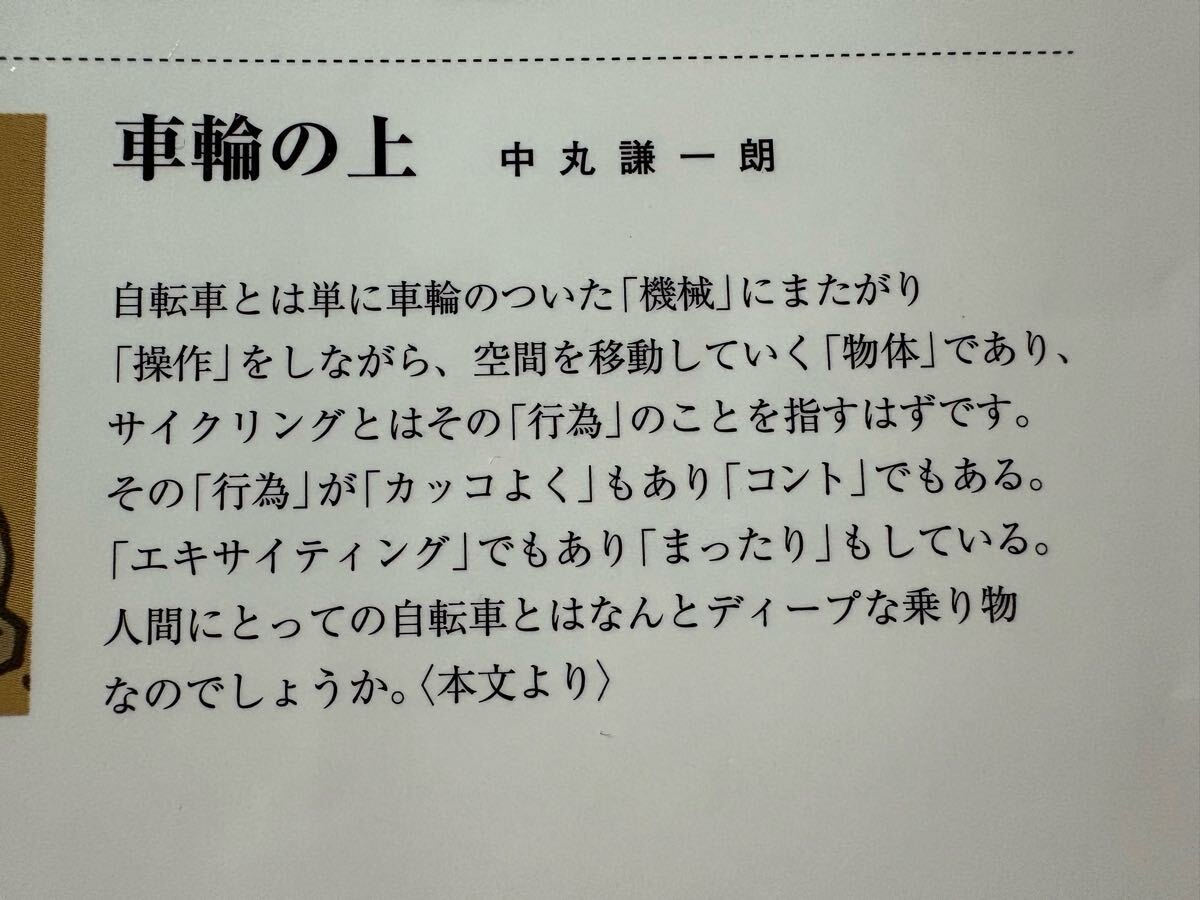 車輪の上 中丸謙一朗
自転車とは単に車輪のついた「機械」にまたがり
「操作」をしながら、空間を移動していく「物体」であり、
サイクリングとはその「行為」のことを指すはずです。
その「行為」が「カッコよく」もあり「コント」でもある。
「エキサイティング」でもあり「まったり」もしている。
人間にとっての自転車とはなんとディープな乗り物
なのでしょうか。〈本文より〉